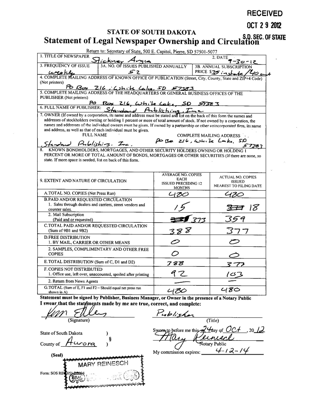 RECEIVED
OCT 29 2012
S.D. SEC. OF STATE
STATE OF SOUTH DAKOTA
Statement of Legal Newspaper Ownership and Circulation
Return to: Secretary of State, 500 E. Capitol, Pierre, SD 57501-5077
1. TITLE OF NEWSPAPER
Stickney Argus
2. DATE
9-30-12
3. FREQUENCY OF ISSUE
weekly
3A. NO. OF ISSUES PUBLISHED ANNUALLY
52
3B. ANNUAL SUBSCRIPTION
PRICE
4. COMPLETE MAILING ADDRESS OF KNOWN OFFICE OF PUBLICATION (Street, City, County, State and ZIP+4 Code)
(Not printers)
Po Box 216, White Lake, SD 57383
5. COMPLETE MAILING ADDRESS OF THE HEADQUARTERS OR GENERAL BUSINESS OFFICES OF THE
PUBLISHER (Not printers)
Po Box 216, White Lake, SD 57383
6. FULL NAME OF PUBLISHER:
Standard Publishing Inc.
7. OWNER (If owned by a corporation, its name and address must be stated and
FULL NAME
COMPLETE MAILING ADDRESS
Standard Publishing Inc.
Po Box 216, White Lake, SD
57383
8. KNOWN BONDHOLDERS, MORTGAGEES, AND OTHER SECURITY HOLDERS OWNING OR HOLDING 1
PERCENT OR MORE OF TOTAL AMOUNT OF BONDS, MORTGAGES OR OTHER SECURITIES (If there are none, so
state. If more space is needed, list on back of this form.
9. EXTENT AND NATURE OF CIRCULATION
AVERAGE NO. COPIES
EACH
ISSUED PRECEDING 12
MONTHS
ACTUAL NO. COPIES
ISSUED
NEAREST TO FILING DATE
A. TOTAL NO. COPIES (Net Press Run)
480
480
B. PAID AND/OR REQUESTED CIRCULATION
1. Sales through dealers and carriers, street vendors and
counter sales.
15
18
2. Mail Subscription
(Paid and or requested)
373
359
C. TOTAL PAID AND/OR REQUESTED CIRCULATION
(Sum of 9B1 and 9B2)
388
377
D. FREE DISTRIBUTION
1. BY MAIL, CARRIER OR OTHER MEANS
0
0
2. SAMPLES, COMPLIMENTARY AND OTHER FREE
COPIES
0
0
E. TOTAL DISTRIBUTION (Sum of C, D1 and D2)
388
377
F. COPIES NOT DISTRIBUTED
1. Office use, left over, unaccounted, spoiled after printing
92
103
2. Return from News Agents
G. TOTAL (Sum of E, F1 and F2 - Should equal net press run
shown in A)
480
480
Statement must be signed by Publisher, Business Manager, or Owner in the presence of a Notary Public
I swear that the statements made by me are true, correct, and complete:
Publisher
(Signature)
(Title)
State of South Dakota
County of Aurora
)
§
)
Sworn to before me this 24 day of Oct, 2012
Mary Reinesch
Notary Public
My commission expires: 4-12-14
(Seal)
MARY REINESCH